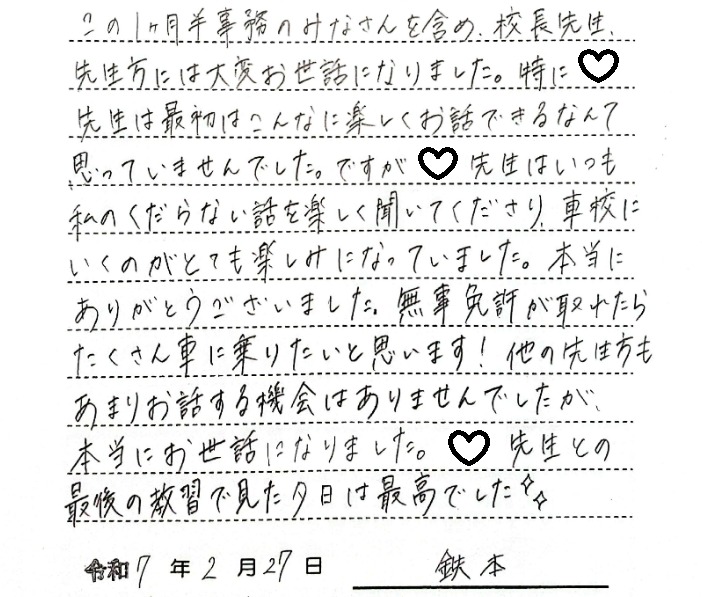 この1ヶ月半事務のみなさんを含め、校長先生、
先生方には大変お世話になりました。特に♡
先生は最初はこんなに楽しくお話できるなんて
思っていませんでした。ですが♡先生はいつも
私のくだらない話を楽しく聞いてくださり、車校に
いくのがとても楽しみになっていました。本当に
ありがとうございました。無事免許が取れたら
たくさん車に乗りたいと思います！他の先生方も
あまりお話する機会はありませんでしたが、
本当にお世話になりました。♡先生との
最後の教習で見た夕日は最高でした✧✧
令和7年2月27日 鉄本